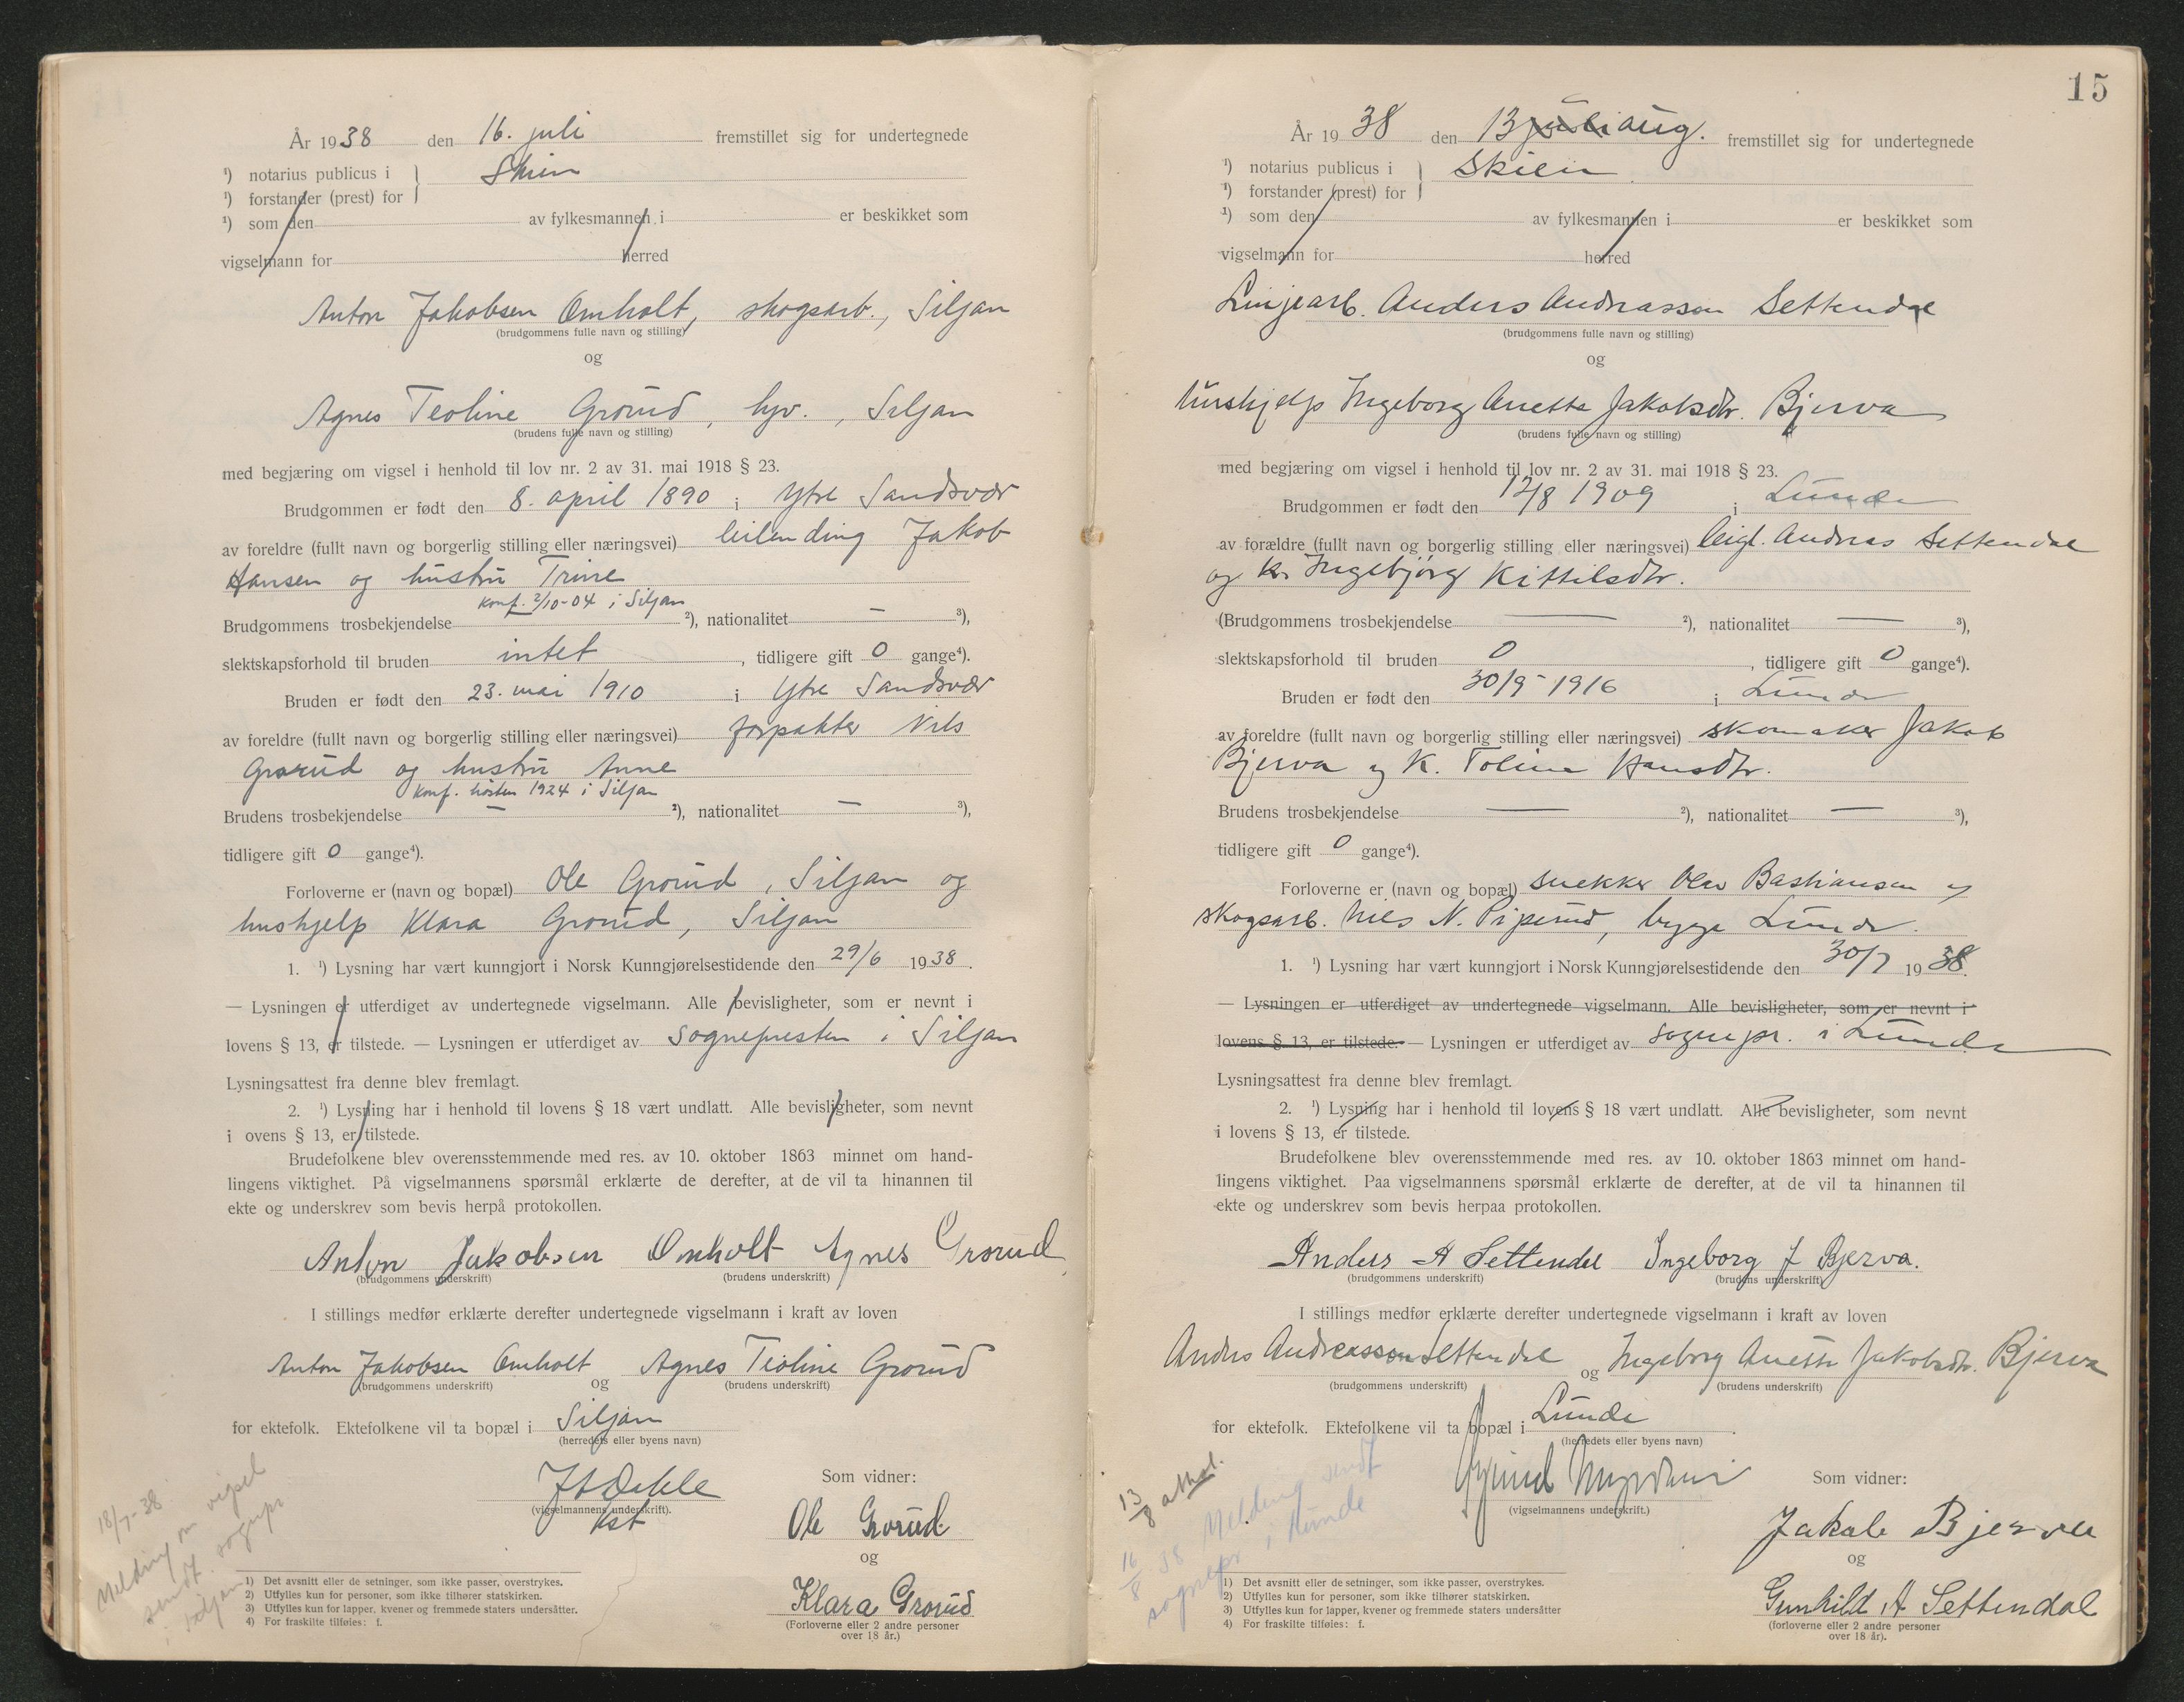 År 1938 den 16. juli fremstillet sig for undertegnede
¹) notarius publicus i } Skien
¹) forstander (prest) for
¹) som den av fylkesmannen i er beskikket som
vigselmann for herred
Anton Jakobsen Omholt, skogsarb., Siljan
(brudgommens fulle navn og stilling)
og
Agnes Teoline Grorud, hv., Siljan
(brudens fulle navn og stilling)
med begjæring om vigsel i henhold til lov nr. 2 av 31. mai 1918 § 23.
Brudgommen er født den 8. april 1890 i Ytre Sandsvær
av foreldre (fullt navn og borgerlig stilling eller næringsvei) leilending Jakob
Hansen og hustru Trine
konf. 2/10-04 i Siljan
Brudgommens trosbekjendelse ²), nationalitet — ³),
slektskapsforhold til bruden intet, tidligere gift 0 gange⁴).
Bruden er født den 23. mai 1910 i Ytre Sandsvær
av foreldre (fullt navn og borgerlig stilling eller næringsvei) forpakter Nils
Grorud og hustru Anne
konf. høsten 1924 i Siljan
Brudens trosbekjendelse — ²), nationalitet — ³),
tidligere gift 0 gange⁴).
Forloverne er (navn og bopæl) Ole Grorud, Siljan og
hushjelp Klara Grorud, Siljan
1. ¹) Lysning har vært kunngjort i Norsk Kunngjørelsestidende den 29/6 1938.
— Lysningen er utferdiget av undertegnede vigselmann. Alle bevisligheter, som er nevnt i
lovens § 13, er tilstede. — Lysningen er utferdiget av sognepresten i Siljan
Lysningsattest fra denne blev fremlagt.
2. ¹) Lysning har i henhold til lovens § 18 vært undlatt. Alle bevisligheter, som nevnt
i ovens § 13, er tilstede.
Brudefolkene blev overensstemmende med res. av 10. oktober 1863 minnet om hand-
lingens viktighet. På vigselmannens spørsmål erklærte de derefter, at de vil ta hinannen til
ekte og underskrev som bevis herpå protokollen.
Anton Jakobsen Omholt Agnes Grorud
(brudgommens underskrift) (brudens underskrift)
I stillings medfør erklærte derefter undertegnede vigselmann i kraft av loven
Anton Jakobsen Omholt og Agnes Teoline Grorud
(brudgommens underskrift) (brudens underskrift)
for ektefolk. Ektefolkene vil ta bopæl i Siljan
(herredets eller byens navn)
Som vidner:
(vigselmannens underskrift).
kst
Ole Grorud
og
Klara Grorud
(Forloverne eller 2 andre personer
over 18 år.)
18/7-38
Melding om vigsel
sendt sognepr
i Siljan
1) Det avsnitt eller de setninger, som ikke passer, overstrykes.
2) Utfylles kun for personer, som ikke tilhører statskirken.
3) Utfylles kun for lapper, kvener og fremmede staters undersåtter.
4) For fraskilte tilføies: f.
15
År 1938 den 13 juli aug. fremstillet sig for undertegnede
¹) notarius publicus i } Skien
¹) forstander (prest) for
¹) som den av fylkesmannen i er beskikket som
vigselmann for herred
Linjearb. Anders Andreassen Settendal
(brudgommens fulle navn og stilling)
og
hushjelp Ingeborg Anette Jakobsdtr. Bjerva
(brudens fulle navn og stilling)
med begjæring om vigsel i henhold til lov nr. 2 av 31. mai 1918 § 23.
Brudgommen er født den 12/8 1909 i Lunde
av forældre (fullt navn og borgerlig stilling eller næringsvei) leigl. Andreas Settendal
og k. Ingebjørg Kittilsdtr.
(Brudgommens trosbekjendelse — ²), nationalitet — ³),
slektskapsforhold til bruden 0, tidligere gift 0 gange⁴).
Bruden er født den 30/9-1916 i Lunde
av foreldre (fullt navn og borgerlig stilling eller næringsvei) skomaker Jakob
Bjerva og k. Toline Hansdtr.
Brudens trosbekjendelse — ²), nationalitet — ³),
tidligere gift 0 gange⁴).
Forloverne er (navn og bopæl) snekker Olav Bastiansen og
skogsarb. Nils N. Piperud, begge Lunde.
1. ¹) Lysning har vært kunngjort i Norsk Kunngjørelsestidende den 30/7 1938.
— Lysningen er utferdiget av undertegnede vigselmann. Alle bevisligheter, som er nevnt i
lovens § 13, er tilstede. — Lysningen er utferdiget av sognepr. i Lunde
Lysningsattest fra denne blev fremlagt.
2. ¹) Lysning har i henhold til lovens § 18 vært undlatt. Alle bevisligheter, som nevnt
i lovens § 13, er tilstede.
Brudefolkene blev overensstemmende med res. av 10. oktober 1863 minnet om hand-
lingens viktighet. Paa vigselmannens spørsmål erklærte de derefter, at de vil ta hinannen til
ekte og underskrev som bevis herpaa protokollen.
Anders A Settendal Ingeborg J Bjerva.
(brudgommens underskrift) (brudens underskrift)
I stillings medfør erklærte derefter undertegnede vigselmann i kraft av loven
Anders Andreassen Settendal og Ingeborg Anette Jakobsdtr. Bjerva
(brudgommens underskrift) (brudens underskrift)
for ektefolk. Ektefolkene vil ta bopæl i Lunde
(herredets eller byens navn)
Som vidner:
(vigselmannens underskrift.)
Jakob Bjerva
og
Gunhild A Settendal
(forloverne eller 2 andre personer
over 18 år).
13/8
16/8 38 Melding sendt
sognepr i Lunde
1) Det avsnitt eller de setninger, som ikke passer, overstrykes.
2) Utfylles kun for personer, som ikke tilhører statskirken.
3) Utfylles kun for lapper, kvener og fremmede staters undersåtter
4) For fraskilte tilføies: f.